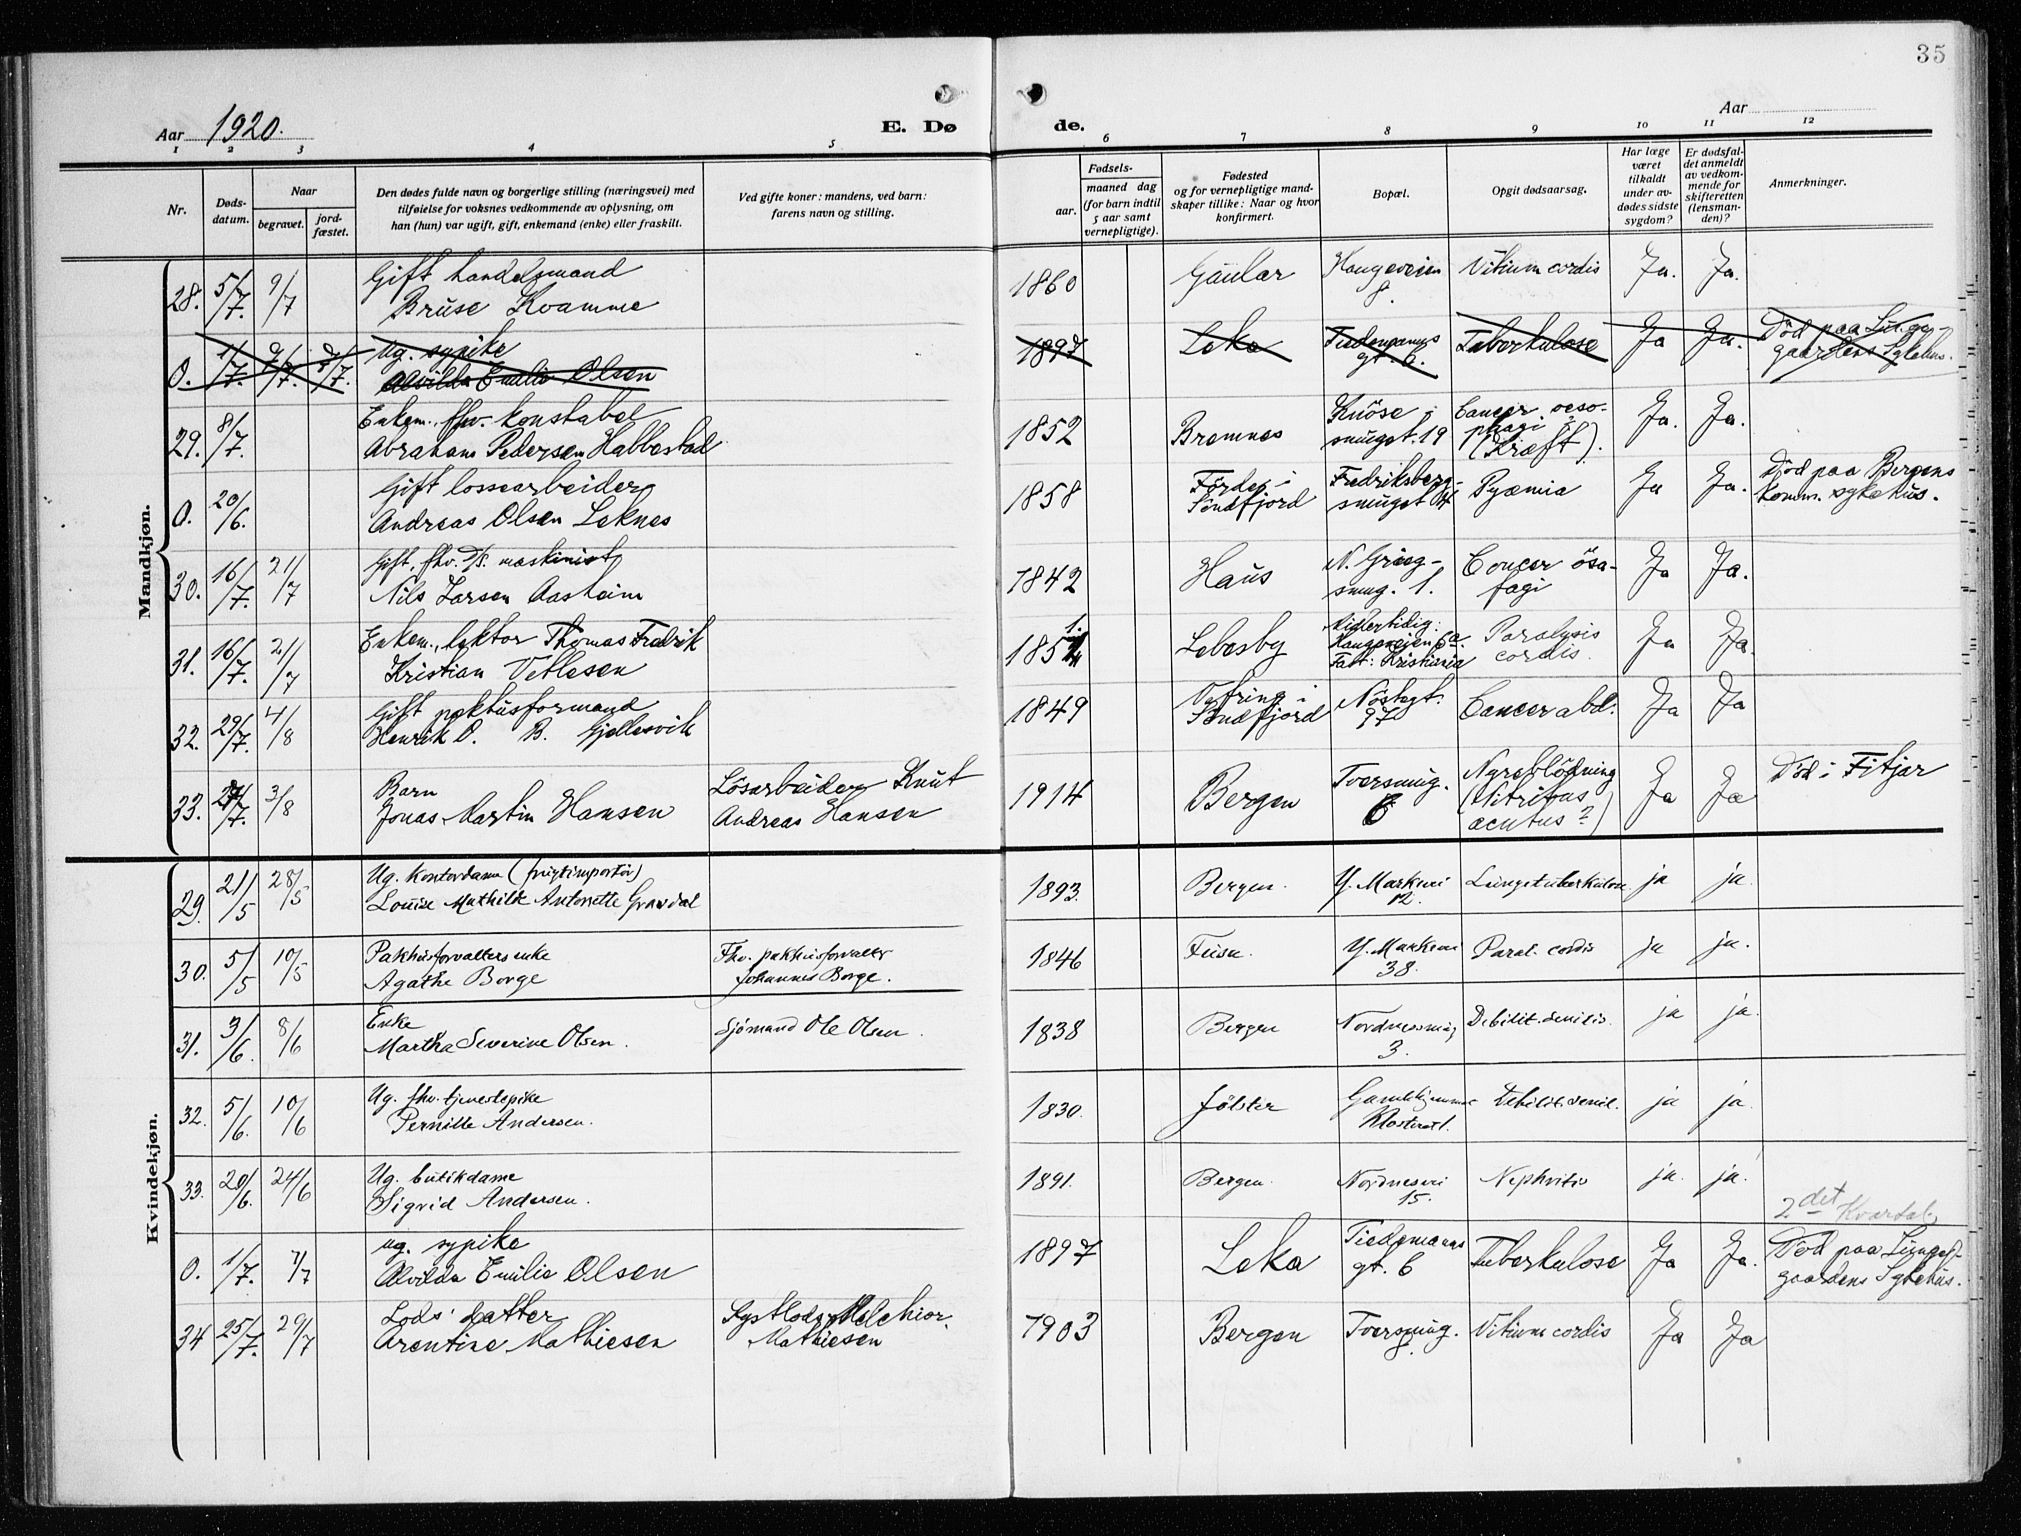 35
Aar 1920.
E. Dø de.
Aar
1 2 3 4 5 6 7 8 9 10 11 12
Nr.
Døds-
datum.
Naar
begravet.
jord-
fæstet.
Den dødes fulde navn og borgerlige stilling (næringsvei) med
tilføielse for voksnes vedkommende av oplysning, om
han (hun) var ugift, gift, enkemand (enke) eller fraskilt.
Ved gifte koner: mandens, ved barn:
farens navn og stilling.
Fødsels-
aar.
maaned dag
(for barn indtil
5 aar samt
vernepligtige).
Fødested
og for vernepligtige mand-
skaper tillike: Naar og hvor
konfirmert.
Bopæl.
Opgit dødsaarsag.
Har læge
været
tilkaldt
under av-
dødes sidste
sygdom?
Er dødsfal-
det anmeldt
av vedkom-
mende for
skifteretten
(lensman-
den)?
Anmerkninger.
Mandkjøn.
28. 5/7. 9/7 Gift handelsmand
Bruse Kvamme
1860 Gaular Haugeveien
8.
Vitium cordis Ja. Ja.
0. 1/7. 7/7. 7/7. Ug. sypike
Alvilda Emilie Olsen
1897 Leka Tiedemanns
gt. 6.
Tuberkulose Ja Ja. Död paa Lunge-
gaardens Sykehus.
29. 8/7. Enkem., fhv. konstabel
Abraham Pedersen Habbestad
1852 Bremnes Knöse-
smuget 19
Cancer oeso-
phagi
(Kræft).
Ja. Ja.
0. 20/6. Gift lossearbeider
Andreas Olsen Leknes
1858 Förde i
Söndfjord
Fredriksberg-
smuget
Pyæmia Ja Ja. Död paa Bergens
komm. sykehus.
30. 16/7. 21/7 Gift, fhv. D/S. maskinist
Nils Larsen Aasheim
1842 Haus N. Grieg-
smug. 1.
Cancer ösa-
fagi
Ja Ja.
31. 16/7. 21/7 Enkem., lektor Thomas Fredrik
Kristian Vetlesen
185 Lebesby Midlertidig:
Haugeveien 6a.
Fast: Kristiania
Paralysis
cordis.
Ja Ja.
32. 29/7. 4/8 Gift pakhusformand
Henrik O. B. Gjellesvik
1849 Vefring i
Söndfjord
Nöstegt.
97
Cancer abd. Ja Ja
33. 27/7. 3/8 Barn
Jonas Martin Hansen
Lösarbeider Knut
Andreas Hansen
1914 Bergen Tversmug.
6
Nyreblödning
(Nitritus
acutus?)
Ja Ja Död i Fitjar
Kvindekjøn.
29. 21/5 28/5 Ug. Kontordame (frugtimportör)
Louise Mathilde Antonette Gravdal
1893. Bergen. Y. Markvei
12.
Lungetuberkulose ja ja.
30. 5/5 10/5 Pakhusforvalters enke
Agathe Borge
Fhv. pakhusforvalter
Johannes Borge.
1846 Fusa Y. Markvei
38.
Paral. cordis ja ja.
31. 3/6. 8/6 Enke
Martha Severine Olsen.
Sjömand Ole Olsen.
1838 Bergen Nordnessmug
3.
Debilit. senilis. ja ja.
32. 5/6. 10/6 Ug. fhv. tjenestepike
Pernille Andersen.
1830. Jölster Gamlehjemmet
Klosteret.
Debilit. senil. ja ja.
33. 20/6. 24/6 Ug. butikdame
Sigrid Andersen.
1891. Bergen. Nordnesvei
15.
Nephritis ja. ja.
2det Kvartal.
0. 1/7. 7/7 Ug. sypike
Alvilda Emilie Olsen
1897 Leka Tiedemanns
gt. 6
Tuberkulose Ja Ja. Död paa Lunge-
gaardens Sykehus.
34 25/7. 29/7 Lods' datter
Arentine Mathiesen
Kystlods Melchior
Mathiesen
1903 Bergen Tversmug. Vitium cordis Ja Ja